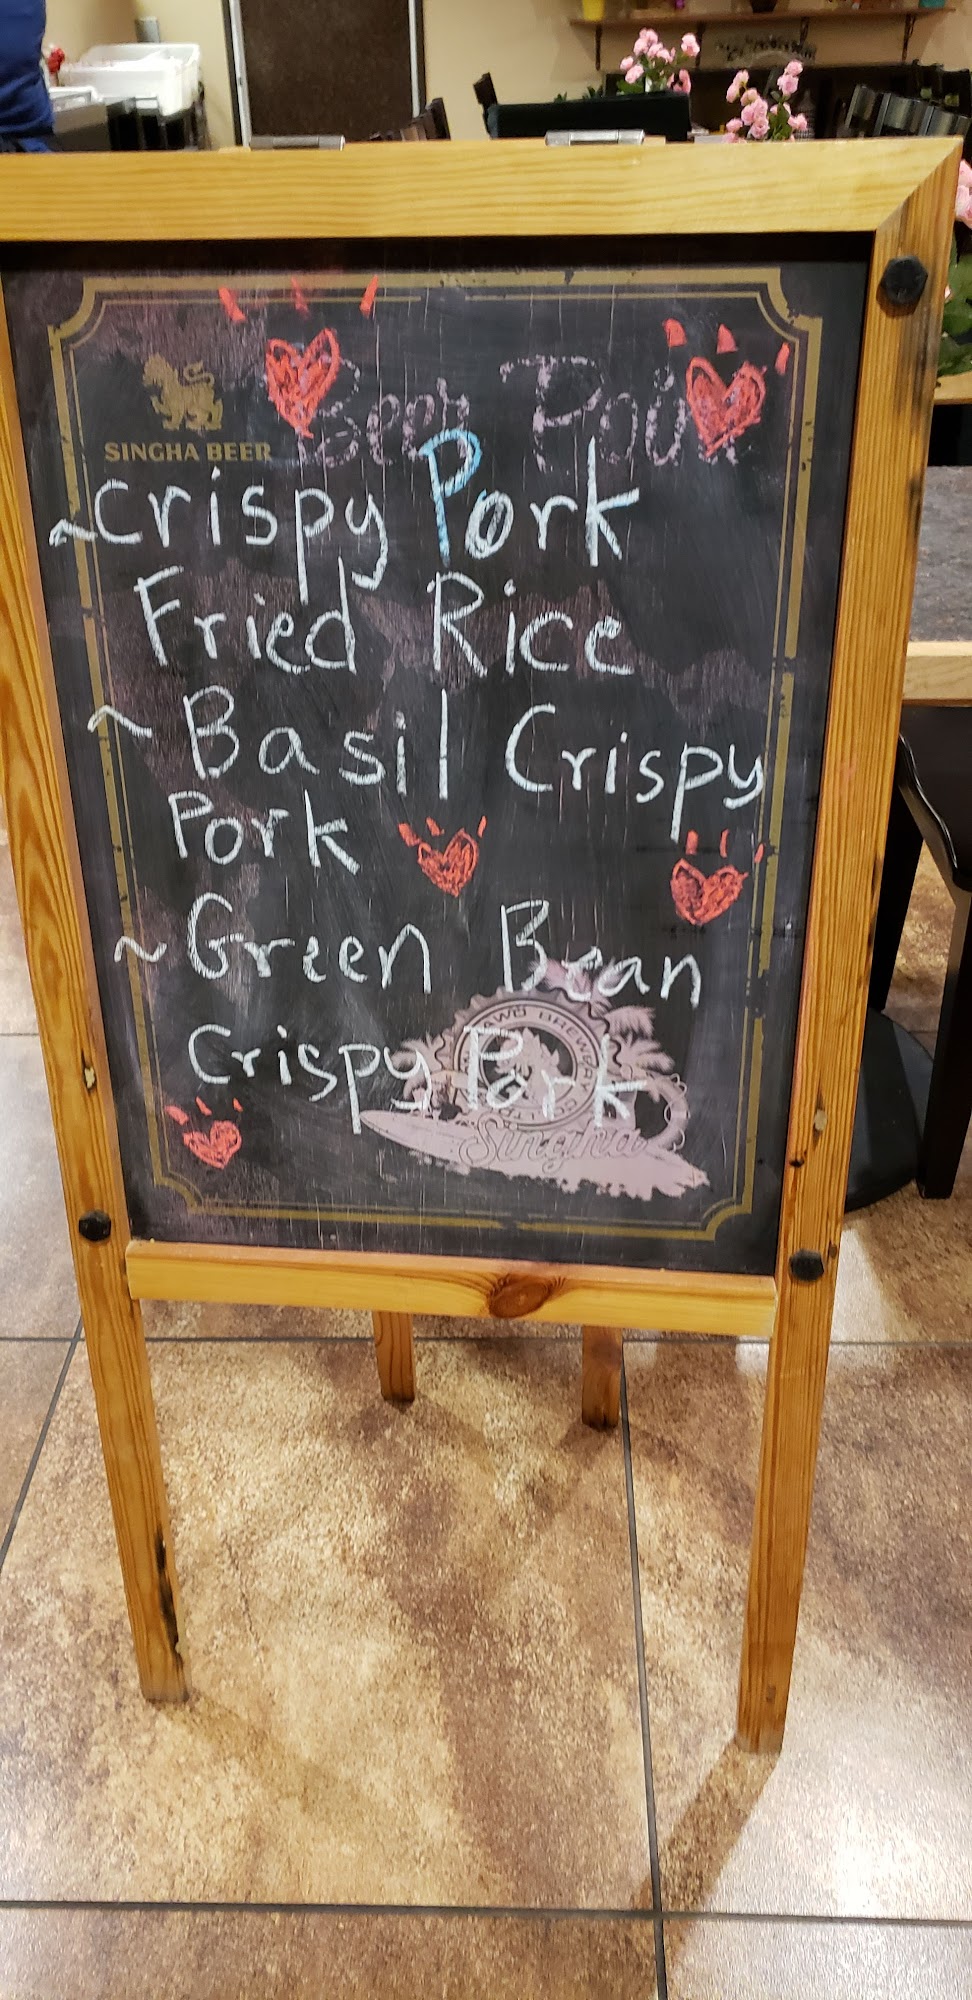 SINGHA BEER
~Crispy Pork
Fried Rice
~ Basil Crispy
Pork
~ Green Bean
Crispy Pork
Singha